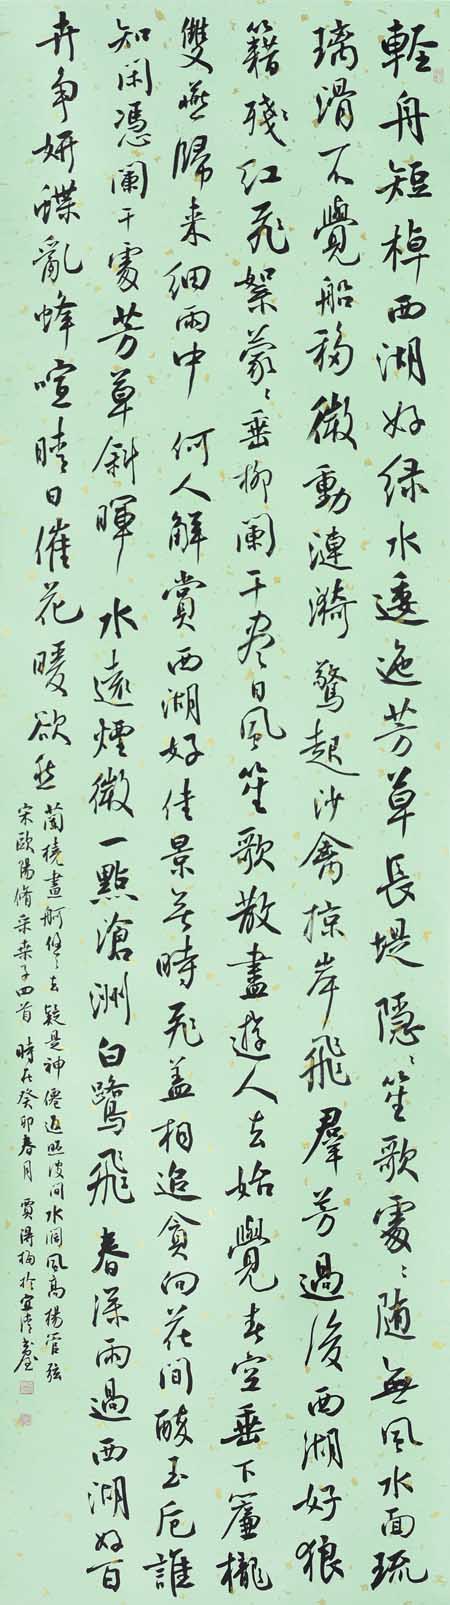 輕舟短棹西湖好绿水逶迤芳草長堤隱〻笙歌處〻随無風水面琉
璃滑不覺船移微動漣漪驚起沙禽掠岸飛羣芳過後西湖好狼
籍殘红飛絮蒙〻垂柳闌干盡日風笙歌散盡遊人去始覺春空垂下簾櫳
雙燕歸來細雨中何人解賞西湖好佳景無時飛蓋相追貪向花間醉玉卮誰
知閑憑闌干處芳草斜暉水遠煙微一點滄洲白鷺飛春深雨過西湖好百
卉争妍蝶亂蜂喧晴日催花暖欲然
蘭橈畫舸悠〻去疑是神僊返照波间水阔風高揚管弦
宋歐陽脩采桑子四首時在癸卯春月賈得梅於